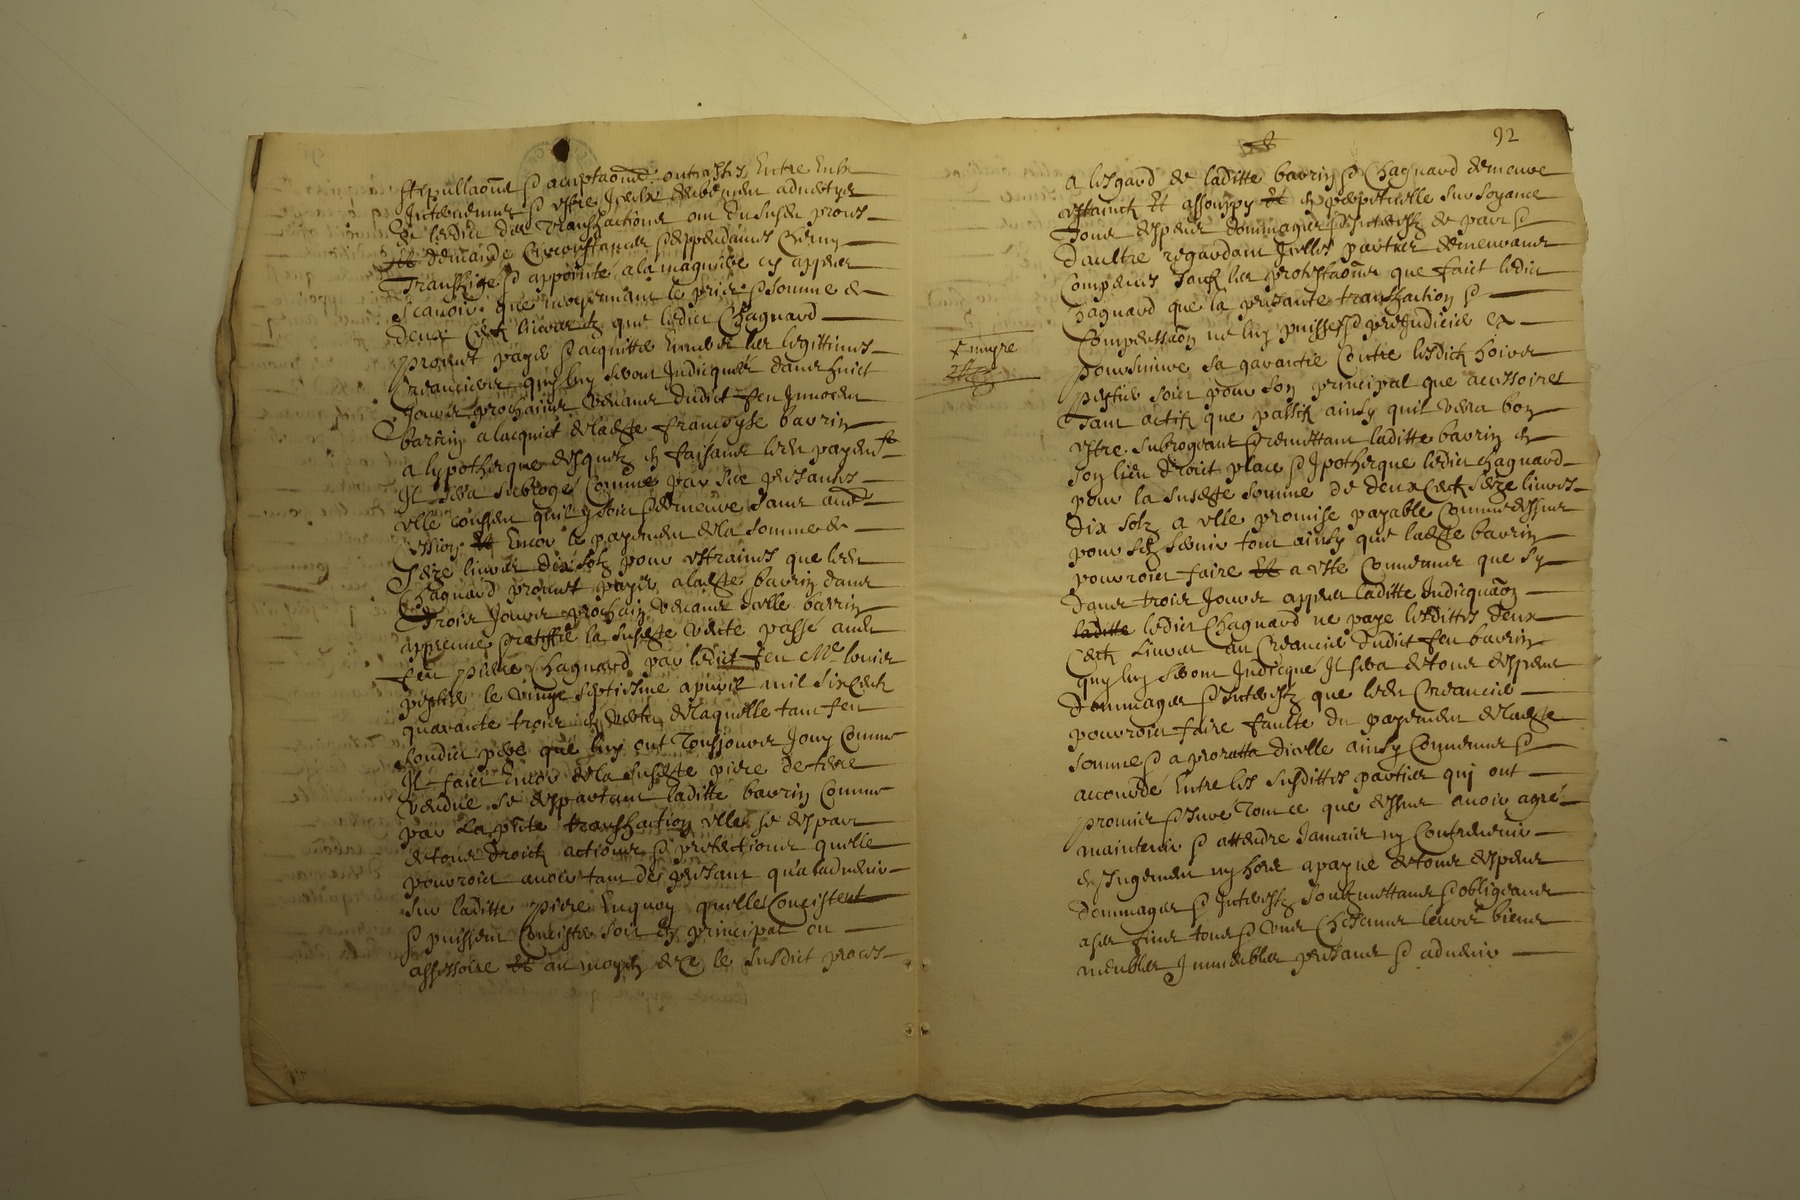 stipullaoñs & acceptaoñs contraictes Entre Eulx
Intervenues & estre Iceulx
le lesdict
Et demande Circonstances & deppendances Ce'nt
Transhige & appointé a la maniere cy appres
Scauoir que moyennant le prix & somme de
deux Cent liures tz que ledict Chagnard
promet paye & acquitte Enuers les legittimes
Creanciers quy luy seront Indicqués dans huict
Jours prochains Venans dudict feu Innocent
barrin a lacquict de ladite françoyse barrin
a lypotheque desquelz En faisant led payemt
Il sera subrogé Comme par Sce presantes
elle consent quil y soit & demeure sans autre
Cession Et Encor le payement de la somme de
Seze liures dix solz pour estraines que led
Chagnard promet payer a ladite barrin dans
Trois Jours prochain venans icelle barrin
appreuue & rattiffie la susdte vente passé audt
feu pierre Chagnard par ledict feu Me louis
le vingt septiesme apuril mil six Centz
quarante trois En vertu de laquelle tant feu
sondict pere que luy ont Tousjours Jouy Comme
Il faict Encor de la susdte piece de terre
vendue se despartant laditte barrin Comme
par La pnte transhaction elle se despart
de tous droictz actions & pretections quelle
pourroict auoir tant des presant qu'a ladvenir
Sur laditte piece Enquoy quelles Concistent
& puissent Concister soit En principal ou
assessoire Et au moyen de ce le susdict proces
92
A lesgard de laditte barrin & Chagnard demeure
estainct Et assouppy Et En perpetuelle surSoyance
Tous despens dommages & Interestz de part &
daultre regardant Icelles parties demeurant
Compencés sauf les protestaoñs que faict ledict
Chagnard que la presante transhaction &
Compensaõn ne luy puisse prejudicier ez
poursuiure sa garantie Contre lesdictz hoirs
soict pour son principal que acessoires
Tant actifz que passifz ainsy quil verra bon
estre Subrogeant & remettant laditte barrin En
son lieu droict place & Ipotheque ledict Chagnard
pour la susdte somme de deux Centz seze liures
dix solz a elle promise payable Comme dessus
pour sen seruir tout ainsy que ladte barrin
pourroict faire Et a este Conuenus que sy
dans trois Jours appres laditte Indicquaõn
laditte ledict Chagnard ne paye lesdittes deux
Centz Liures au Creancier dudict feu barrin
quy luy seront Indicqué Il sera de tous despens
dommages & Interestz que led Creancier
pourroict faire faulte du payement de ladte
somme & a proratta dicelle ainsy Conuenus &
accourdé Entre les susdittes parties quj ont
promis & Juré Tout ce que dessus auoir agré
maintenir & attendre Jamais ny Contreuenir
En Jugement ny hors a payne de tous despens
dommages & Interestz soubzmettant & obligeant
a ses fins tous & uns Chescuns leurs biens
meubles Immeubles presans & aduenir